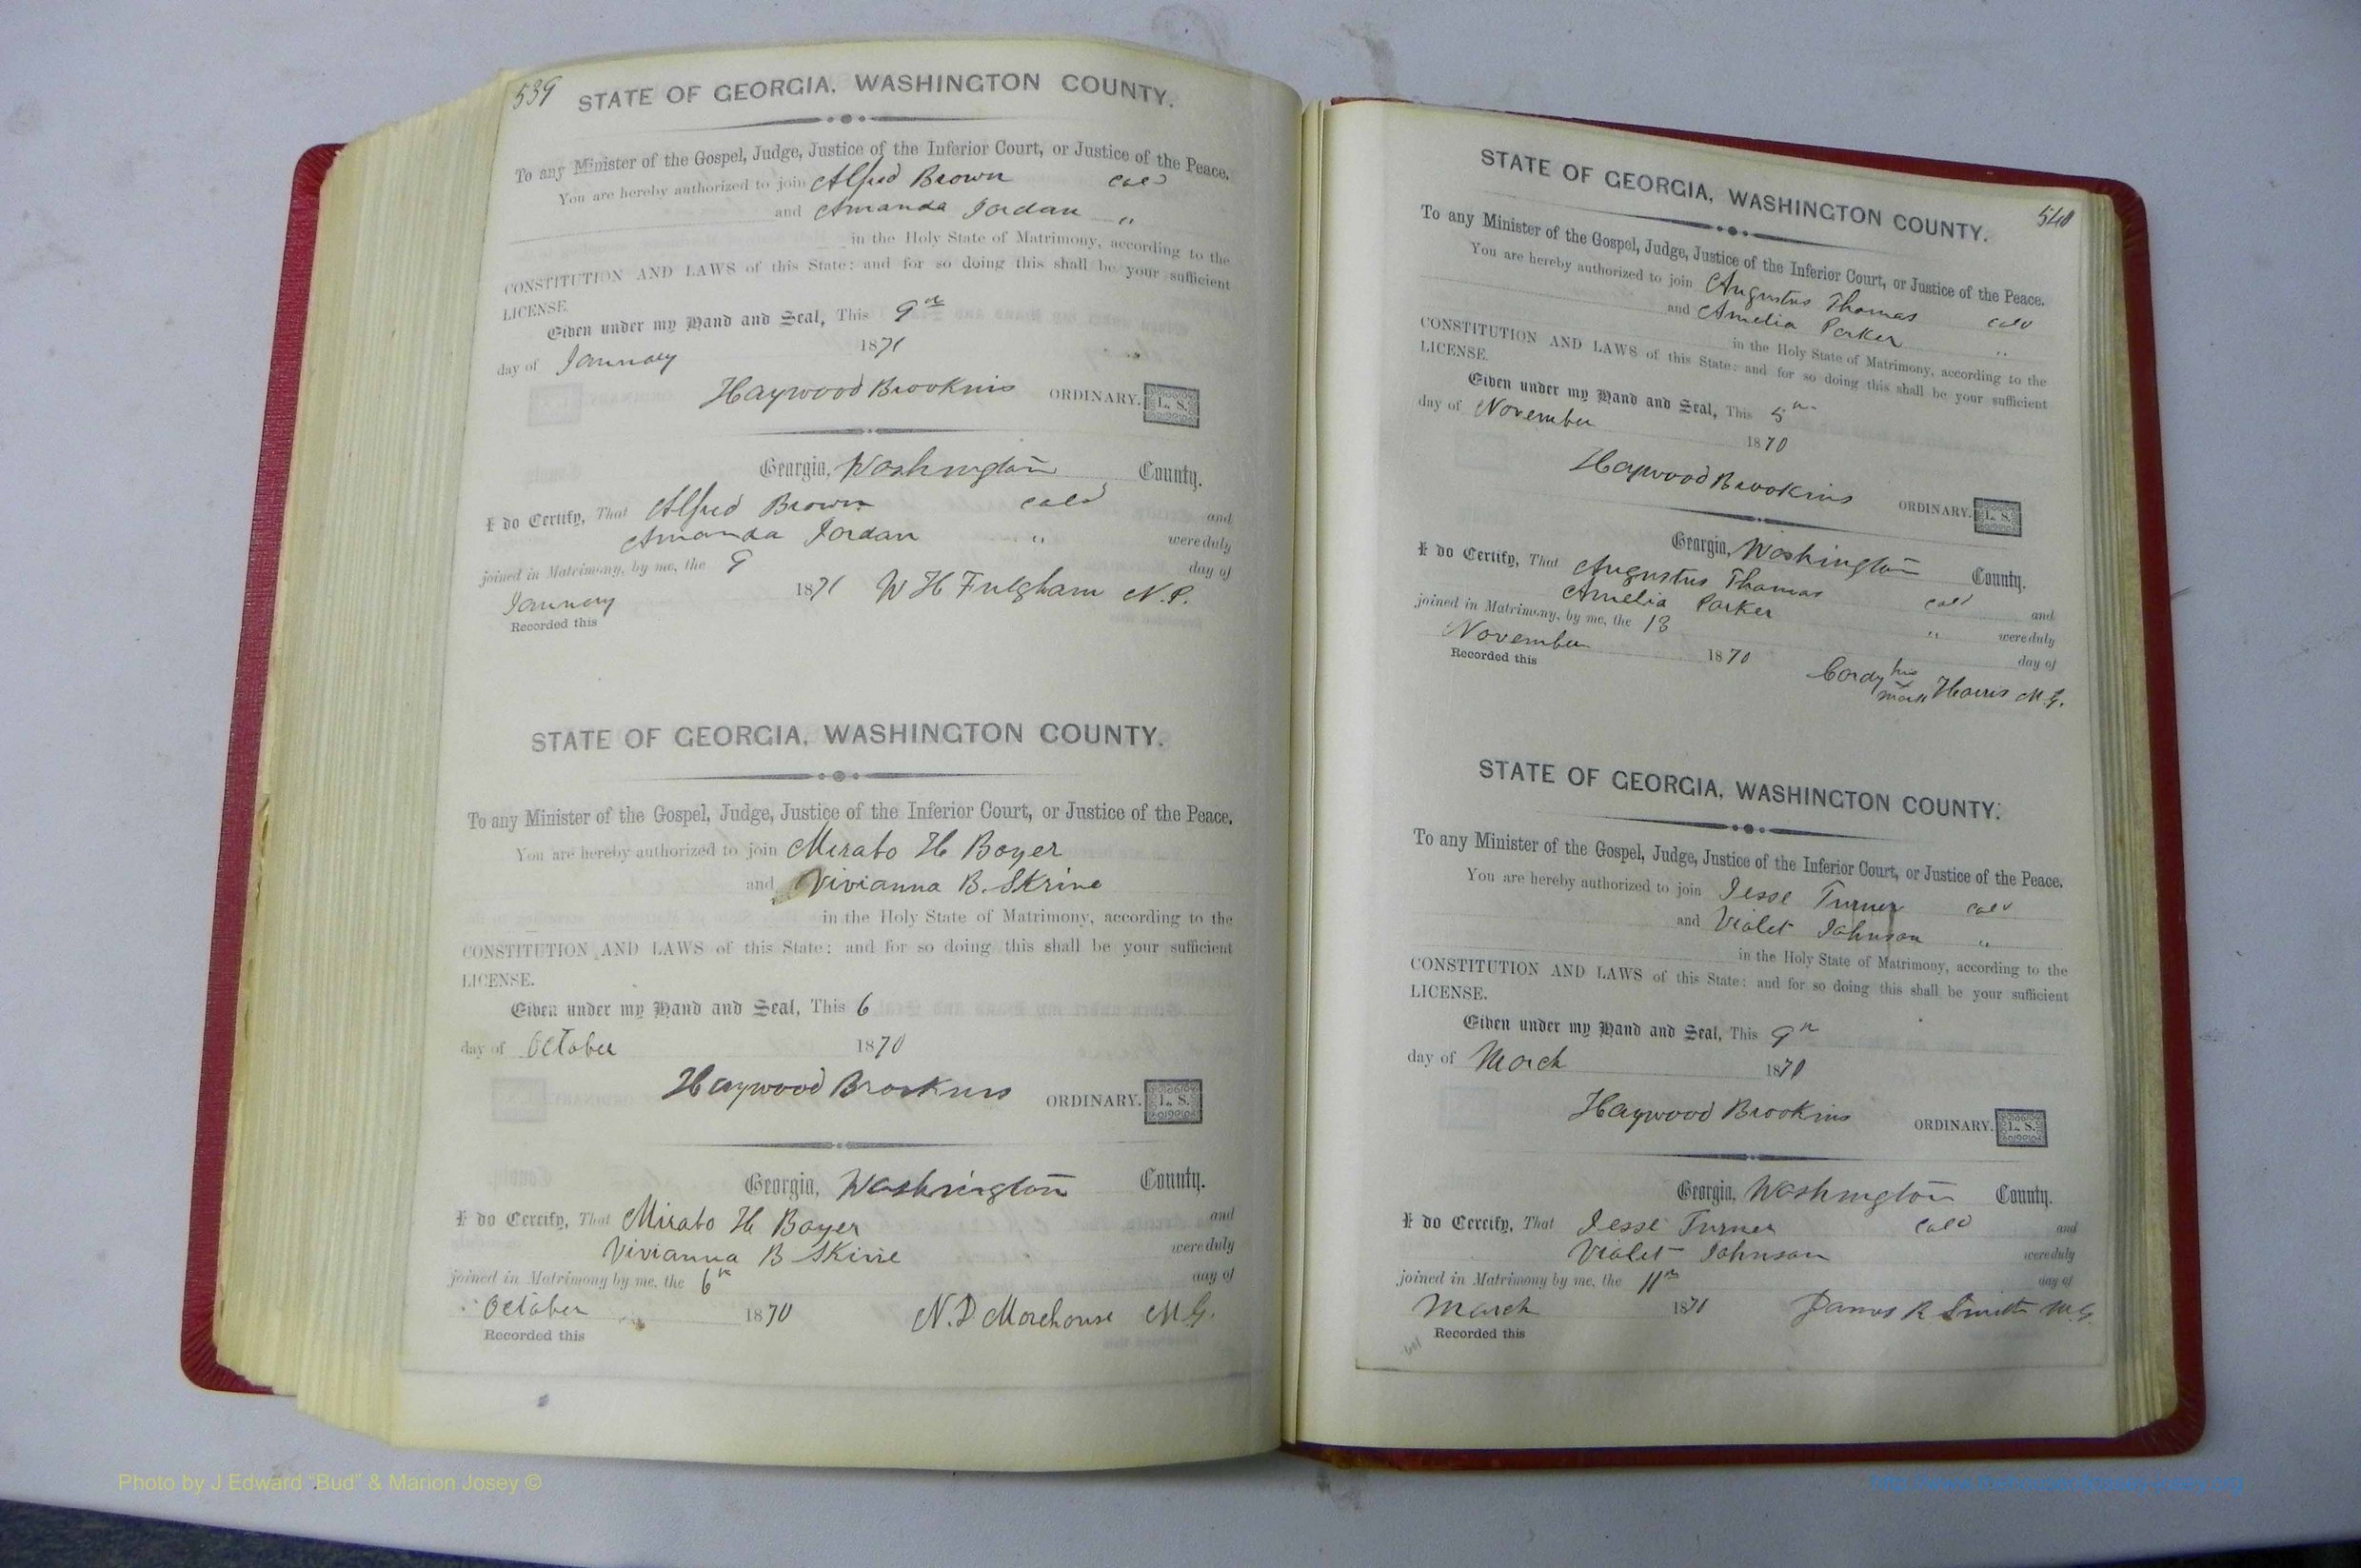 539
STATE OF GEORGIA, WASHINGTON COUNTY.
To any Minister of the Gospel, Judge, Justice of the Inferior Court, or Justice of the Peace.
You are hereby authorized to join Alfred Brown Cold
and Amanda Jordan "
in the Holy State of Matrimony, according to the
CONSTITUTION AND LAWS of this State: and for so doing this shall be your sufficient
LICENSE.
Given under my Hand and Seal, This 9th
day of January 1871
Haywood Brookins ORDINARY. L. S.
Georgia, Washington County.
I do Certify, That Alfred Brown cold and
Amanda Jordan " were duly
joined in Matrimony, by me, the 9 day of
January 1871 W H Fulgham N.P.
Recorded this
STATE OF GEORGIA, WASHINGTON COUNTY.
To any Minister of the Gospel, Judge, Justice of the Inferior Court, or Justice of the Peace.
You are hereby authorized to join Mirabo H Boyer
and Vivianna B. Skrine
in the Holy State of Matrimony, according to the
CONSTITUTION AND LAWS of this State: and for so doing this shall be your sufficient
LICENSE.
Given under my Hand and Seal, This 6
day of October 1870
Haywood Brookins ORDINARY. L. S.
Georgia, Washington County.
I do Certify, That Mirabo H Boyer and
Vivianna B Skrine were duly
joined in Matrimony by me, the 6th day of
October 1870 N. D Morehouse M G.
Recorded this
540
STATE OF GEORGIA, WASHINGTON COUNTY.
To any Minister of the Gospel, Judge, Justice of the Inferior Court, or Justice of the Peace.
You are hereby authorized to join Augustus Thomas cold
and Amelia Parker "
in the Holy State of Matrimony, according to the
CONSTITUTION AND LAWS of this State: and for so doing this shall be your sufficient
LICENSE.
Given under my Hand and Seal, This 5th
day of November 1870
Haywood Brookins ORDINARY. L. S.
Georgia, Washington County.
I do Certify, That Augustus Thomas cold and
Amelia Parker " were duly
joined in Matrimony, by me, the 13 day of
November 1870 Cordy his x mark Harris M.G.
Recorded this
STATE OF GEORGIA, WASHINGTON COUNTY.
To any Minister of the Gospel, Judge, Justice of the Inferior Court, or Justice of the Peace.
You are hereby authorized to join Jesse Turner cold
and Violet Johnson "
in the Holy State of Matrimony, according to the
CONSTITUTION AND LAWS of this State: and for so doing this shall be your sufficient
LICENSE.
Given under my Hand and Seal, This 9th
day of March 1871
Haywood Brookins ORDINARY. L. S.
Georgia, Washington County.
I do Certify, That Jesse Turner cold and
Violet Johnson were duly
joined in Matrimony by me, the 11th day of
March 1871 James R Smith M.G.
Recorded this
Photo by J Edward "Bud" & Marion Josey ©